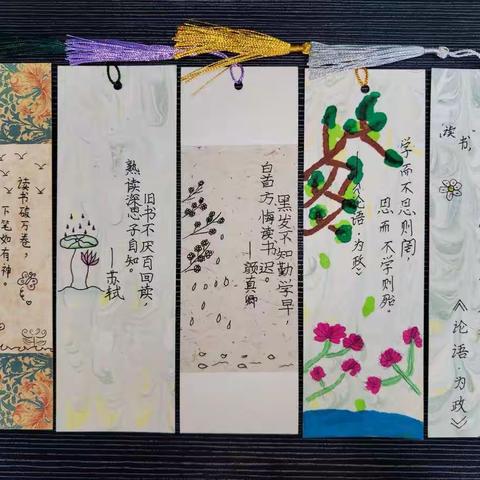 读书破万卷,
下笔如有神。
旧书不厌百回读,
熟读深思子自知。
—苏轼
黑发不知勤学早,
白首方悔读书迟。
—颜真卿
学而不思则罔,
思而不学则殆。
《论语·为政》
读书,
《论语·为政》